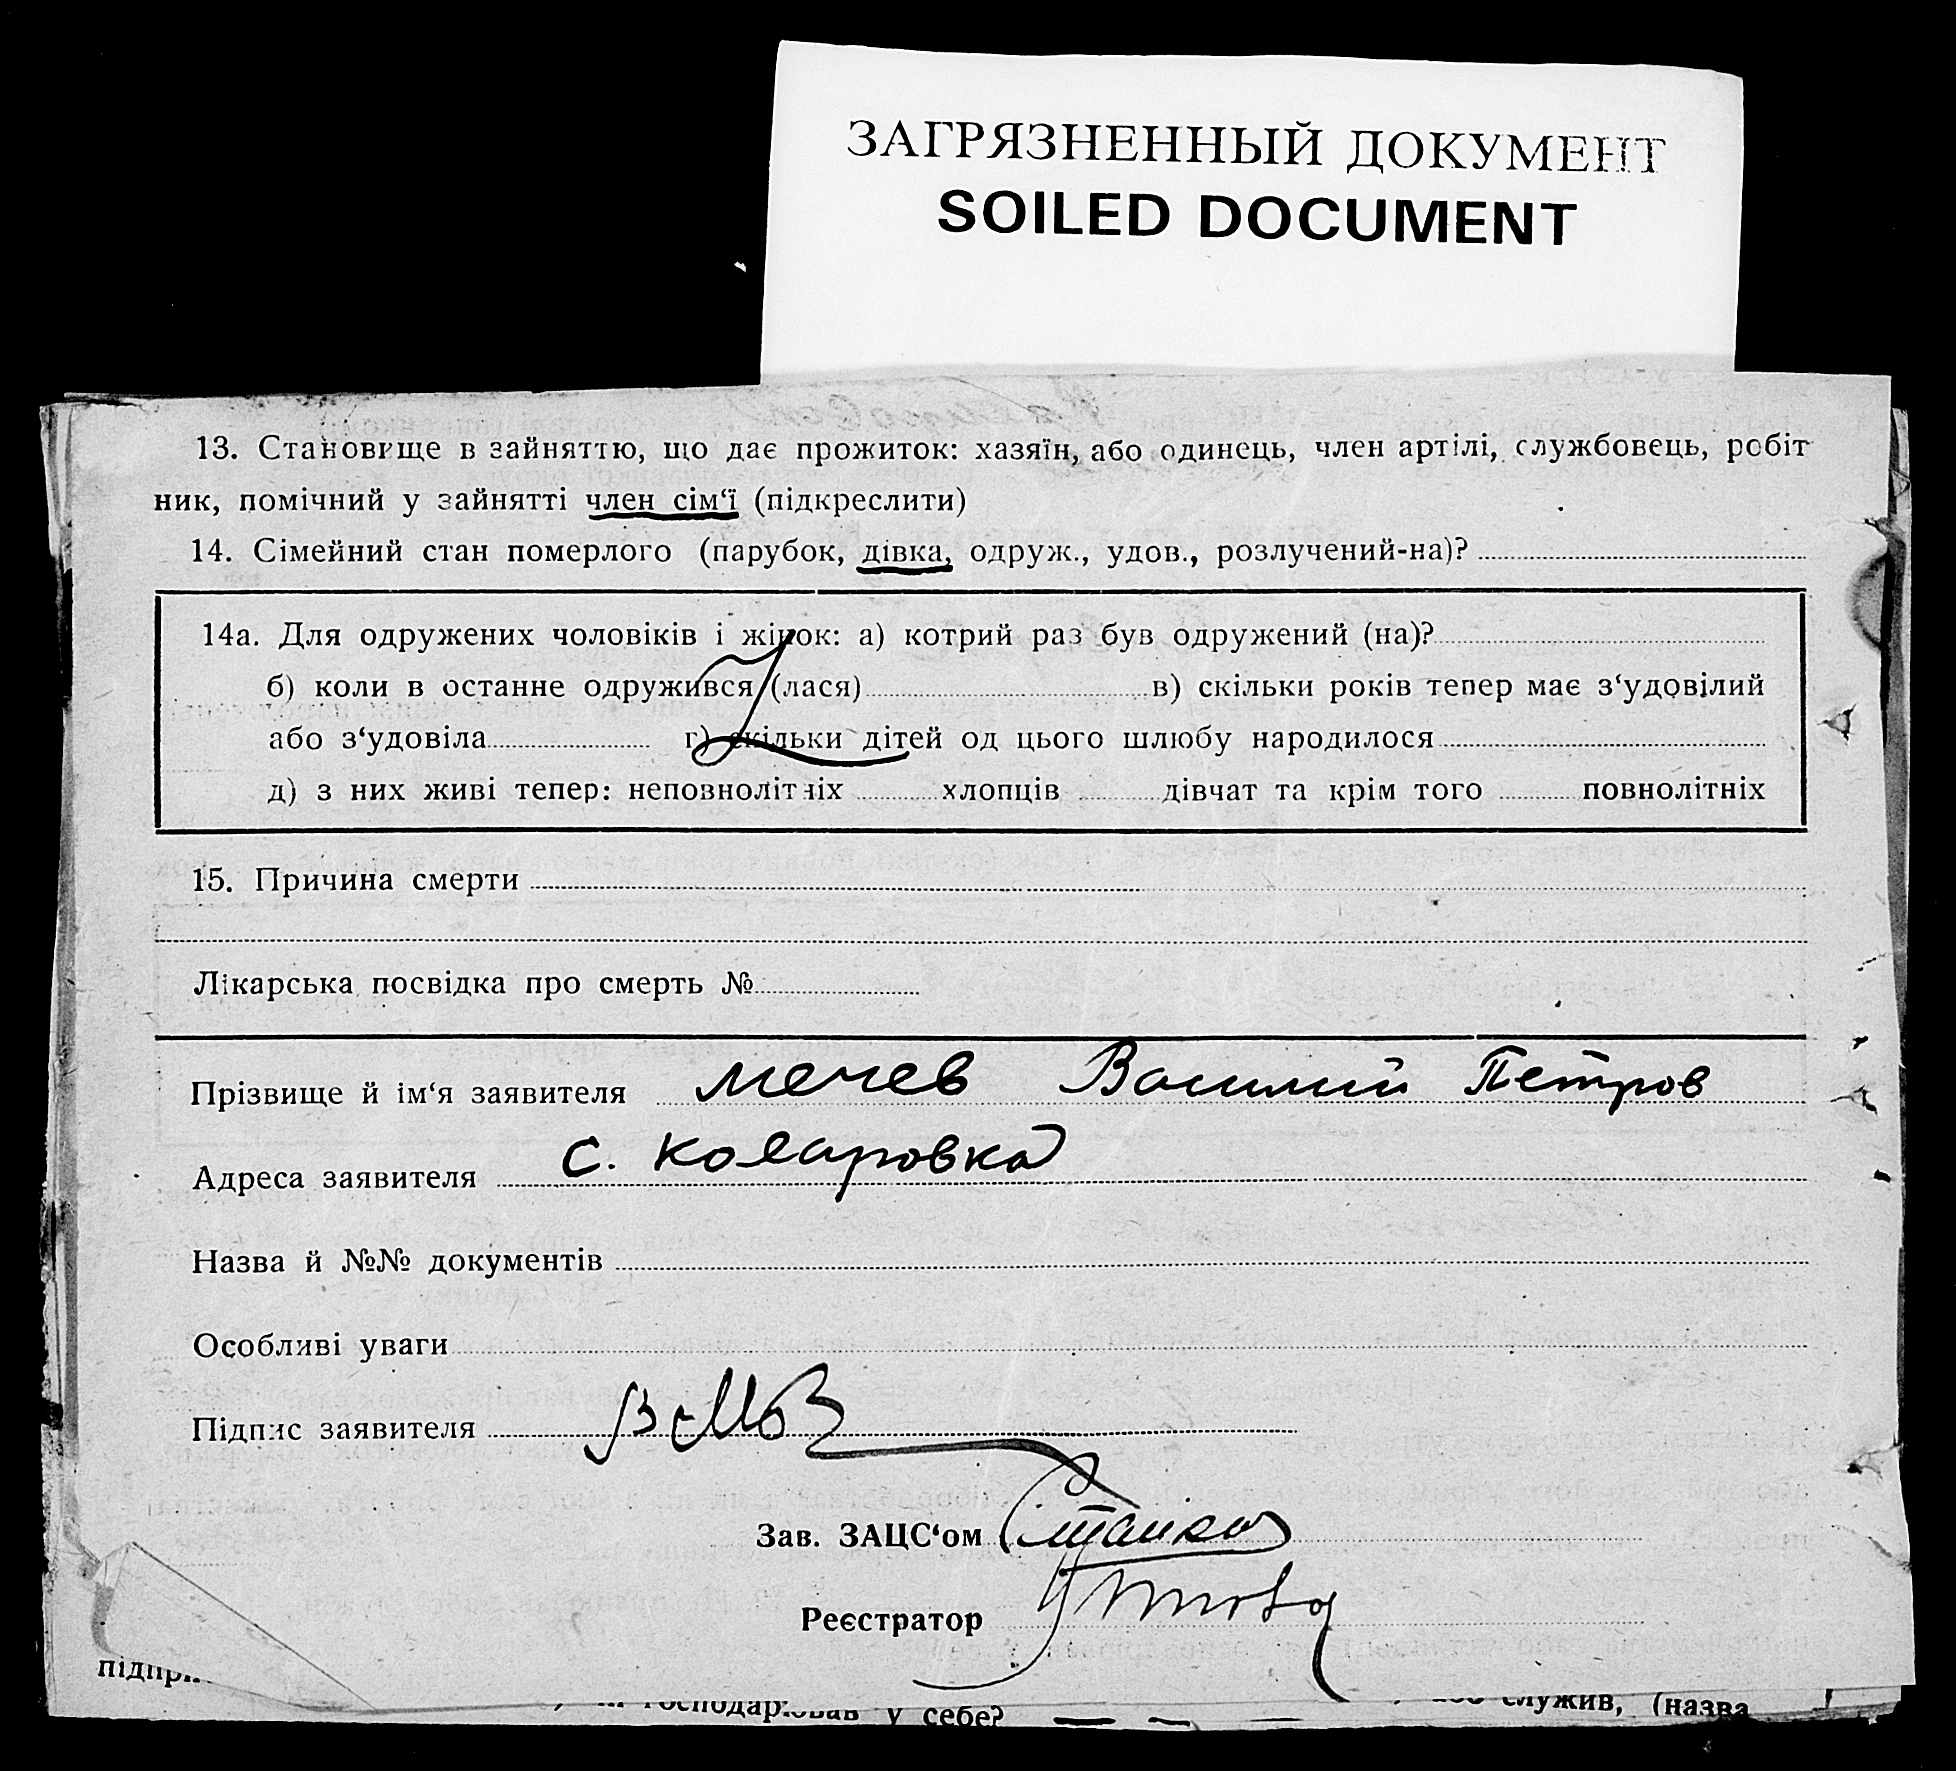 ЗАГРЯЗНЕННЫЙ ДОКУМЕНТ
SOILED DOCUMENT
13. Становище в зайняттю, що дає прожиток: хазяїн, або одинець, член артілі, службовець, робіт
ник, помічний у зайнятті член сім‘ї (підкреслити)
14. Сімейний стан померлого (парубок, дівка, одруж., удов., розлучений-на)?
14а. Для одружених чоловіків і жінок: а) котрий раз був одружений (на)?
б) коли в останне одружився (лася) в) скільки років тепер має з‘удовілий
або з‘удовіла г) скільки дітей од цього шлюбу народилося
д) з них живі тепер: неповнолітніх хлопців дівчат та крім того повнолітніх
15. Причина смерти
Лікарська посвідка про смерть №
Прізвище й ім‘я заявителя Мечев Василий Петров
Адреса заявителя с. Коларовка
Назва й №№ документів
Особливі уваги
Підпис заявителя
Зав. ЗАЦС‘ом
Реєстратор
у себе? служив, (назва